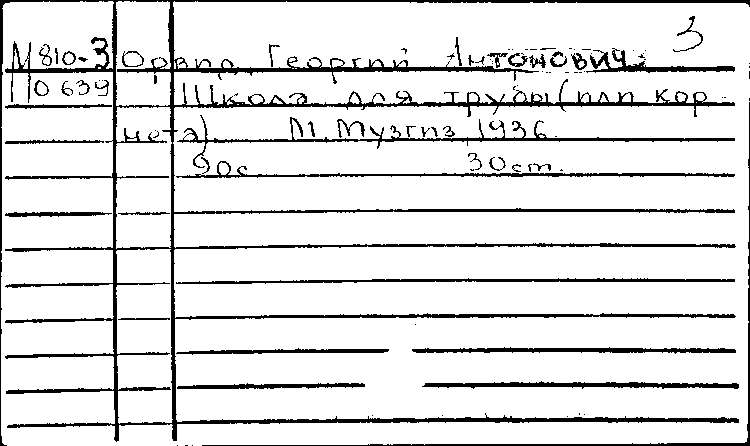 3
М810-3 Орвид, Георгий Антонович.
П0639 Школа для трубы (или кор
нета). М. Музгиз, 1936.
90с. 30cm.